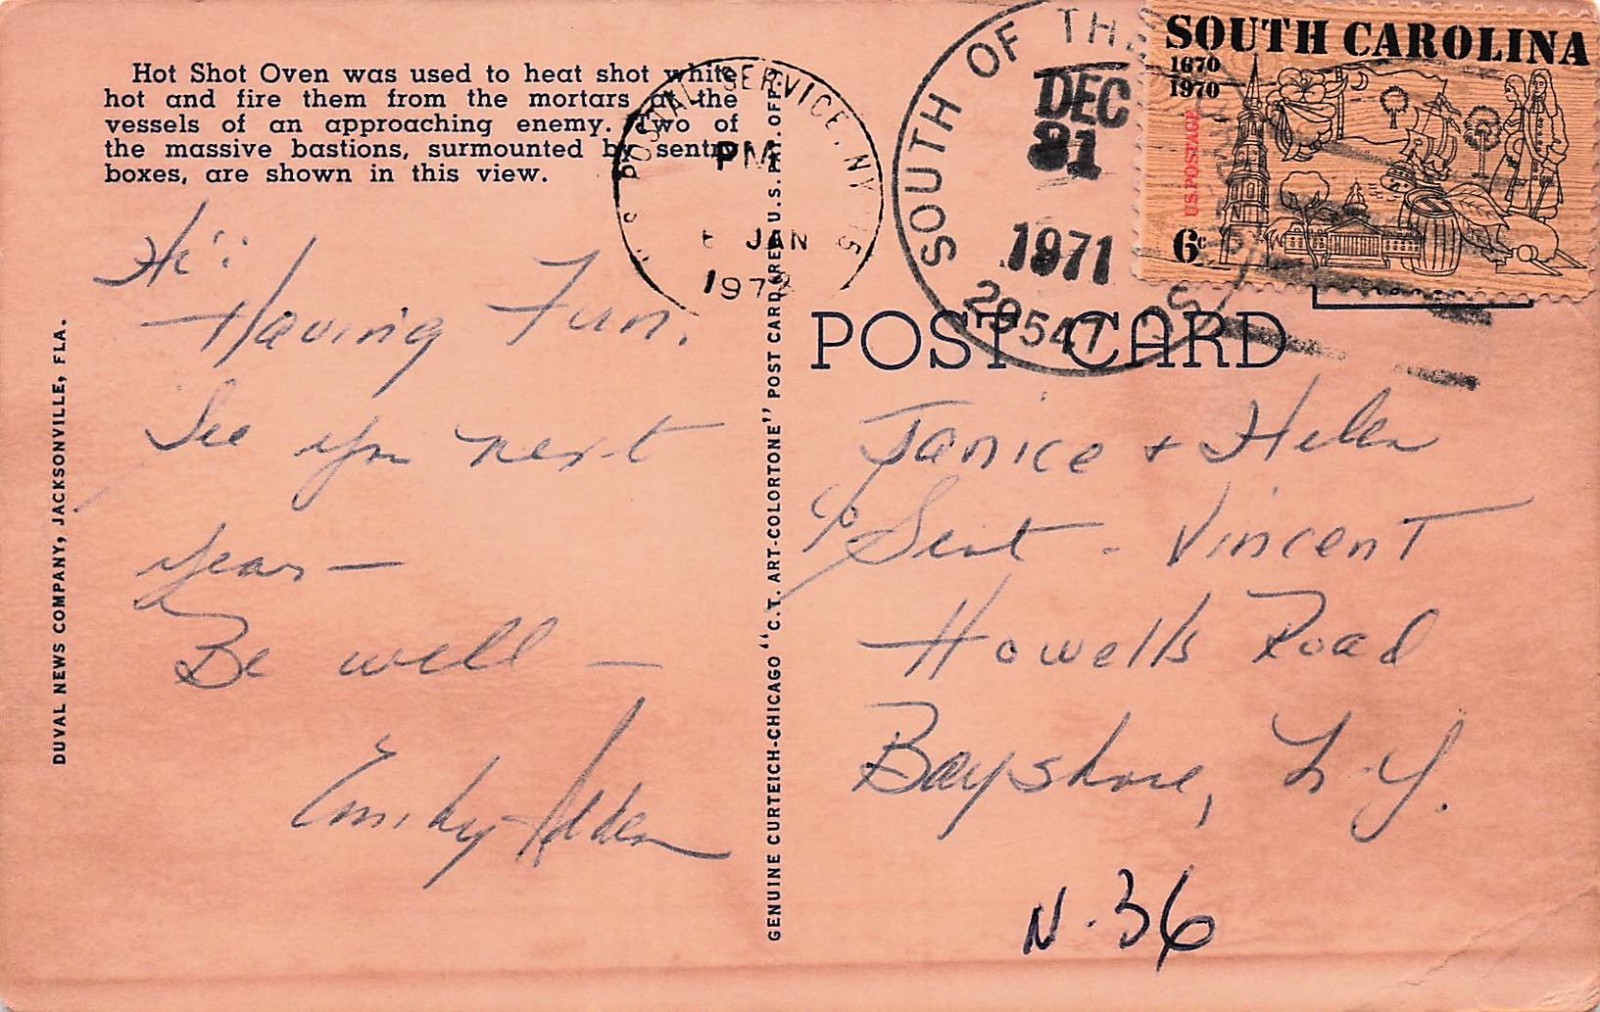 Hot Shot Oven was used to heat shot white
hot and fire them from the mortars at the
vessels of an approaching enemy. Two of
the massive bastions, surmounted by sentry
boxes, are shown in this view.
Hi:
Having Fun.
See you next
year —
Be well —
DUVAL NEWS COMPANY, JACKSONVILLE, FLA.
GENUINE CURTEICH-CHICAGO "C.T. ART-COLORTONE" POST CARD REG. U.S. PAT. OFF.
POSTAL SERVICE, NY
PM
JAN
SOUTH OF THE
DEC
31
1971
29547
SC
SOUTH CAROLINA
1670
1970
U.S. POSTAGE
6c
POST CARD
Janice + Helen
c/o Sent - Vincent
Howells Road
Bayshore, N.Y.
N-36